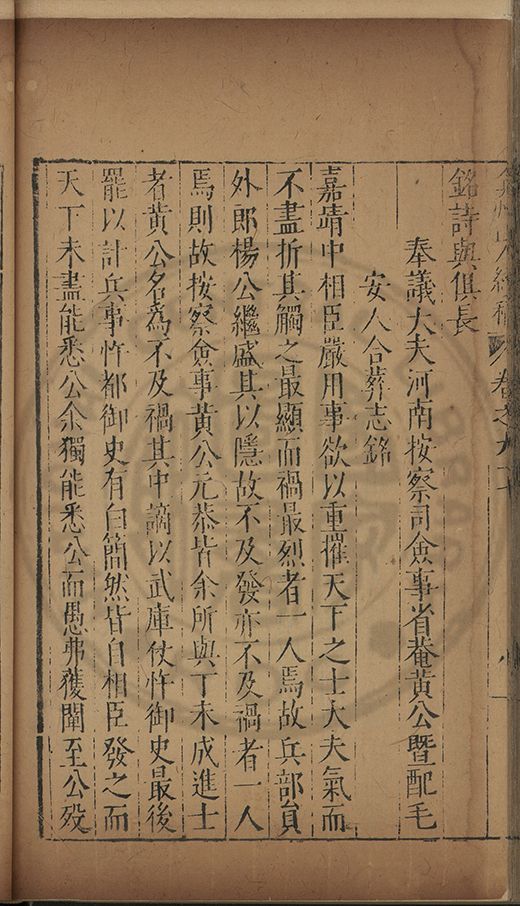 銘詩與俱長
奉議大夫河南按察司僉事省菴黃公暨配毛
安人合葬志銘
嘉靖中相臣嚴用事欲以重摧天下之士大夫氣而
不盡折其觸之最顯而禍最烈者一人焉故兵部員
外郎楊公繼盛其以隱故不及發亦不及禍者一人
焉則故按察僉事黃公元恭皆余所與丁未成進士
者黃公名爲不及禍其中謫以武庫仗忤御史最後
罷以計兵事忤都御史有白簡然皆自相臣發之而
天下未盡能悉公余獨能悉公而愚弗獲闡至公歿